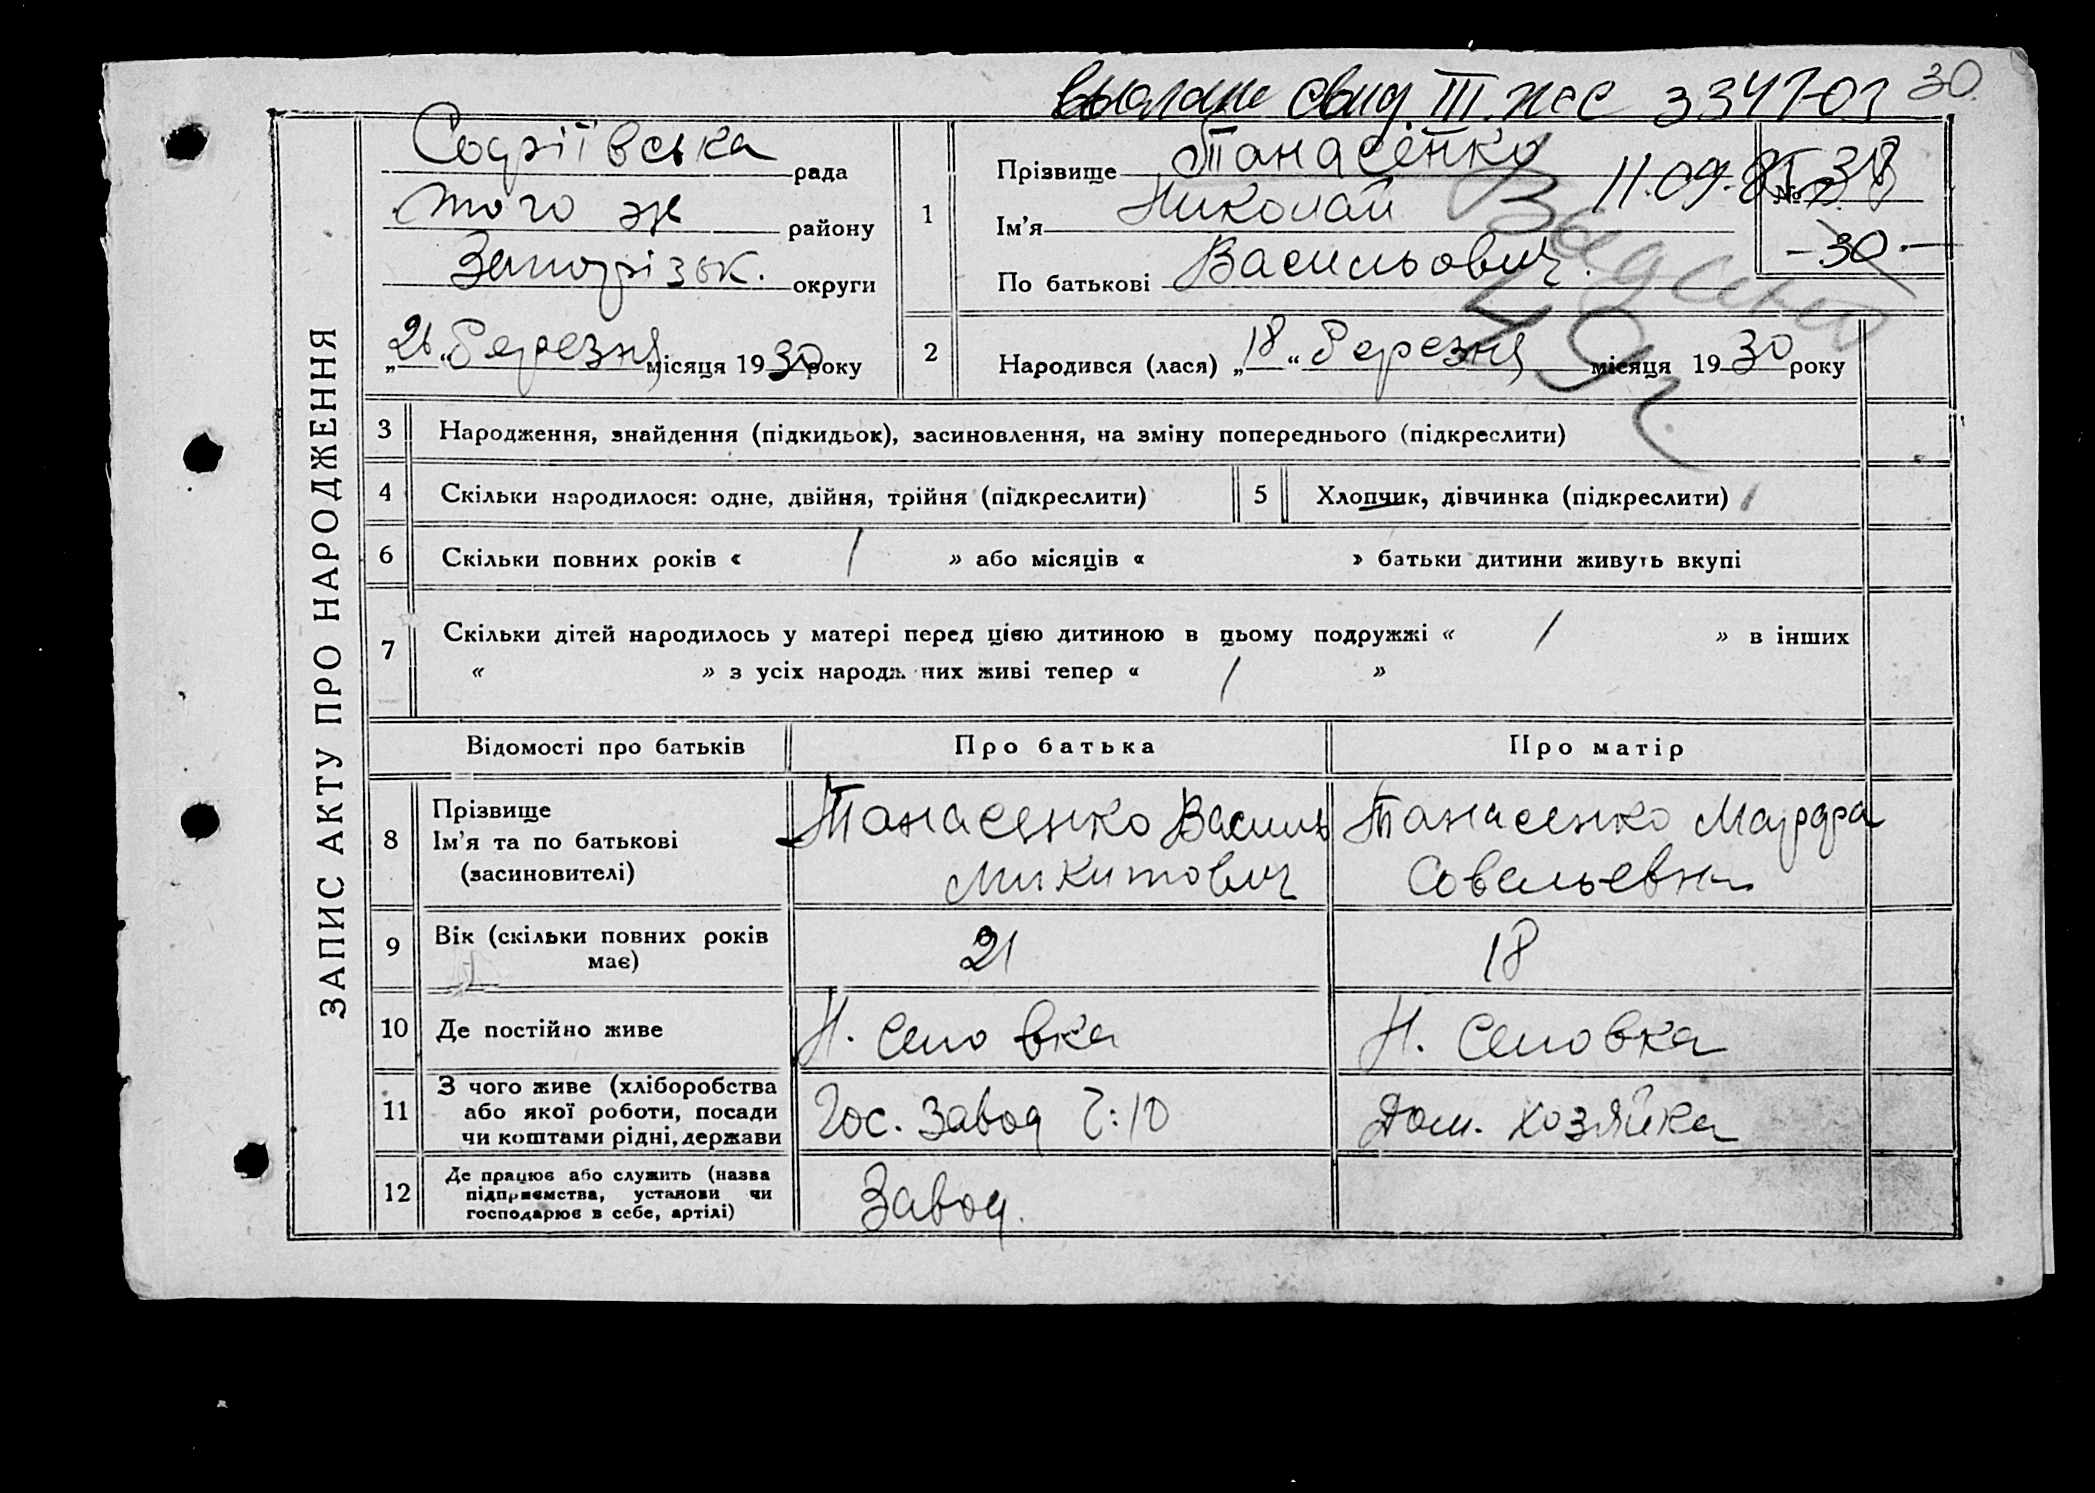 30
свид. III
ЗАПИС АКТУ ПРО НАРОДЖЕННЯ
Софіївська рада
того ж району
Запорізьк. округи
„26“ березня місяця 1930 року
1
Прізвище Танасенко
Ім'я Николай
По батькові Васильович.
11.09.85
№ 38
-30-
2
Народився (лася) „18“ березня місяця 1930 року
3 Народження, знайдення (підкидьок), засиновлення, на зміну попереднього (підкреслити)
4 Скільки народилося: одне, двійня, трійня (підкреслити)
5 Хлопчик, дівчинка (підкреслити)
6 Скільки повних років « / » або місяців « » батьки дитини живуть вкупі
7 Скільки дітей народилось у матері перед цією дитиною в цьому подружжі « / » в інших
« » з усіх народж них живі тепер « / »
Відомості про батьків Про батька Про матір
8 Прізвище
Ім'я та по батькові
(засиновителі)
Танасенко Василь
Микитович
Танасенко Марфа
Савельевна
9 Вік (скільки повних років
має)
21
18
10 Де постійно живе
Н.
Н.
11 З чого живе (хліборобства
або якої роботи, посади
чи коштами рідні, держави
Гос. завод
Дом. хозяйка
12 Де працює або служить (назва
підприємства, установи чи
господарює в себе, артілі)
Завод.